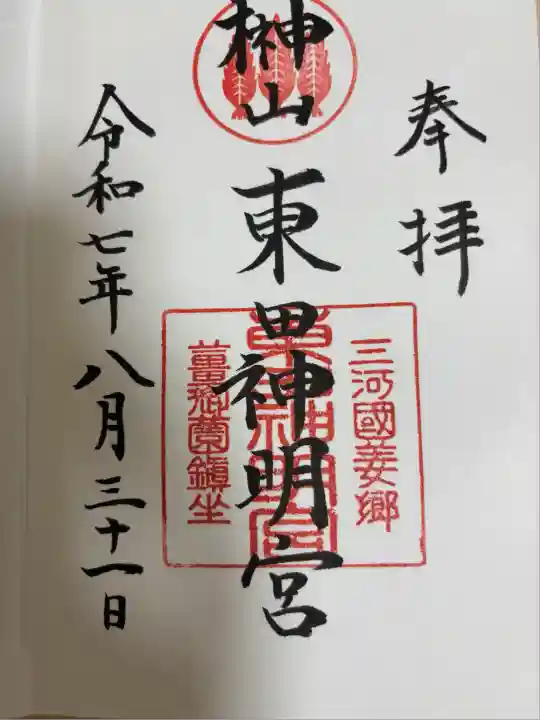 奉拝
三河國姜郷
榊山
東田神明宮
薑御薗鎮坐
令和七年八月三十一日